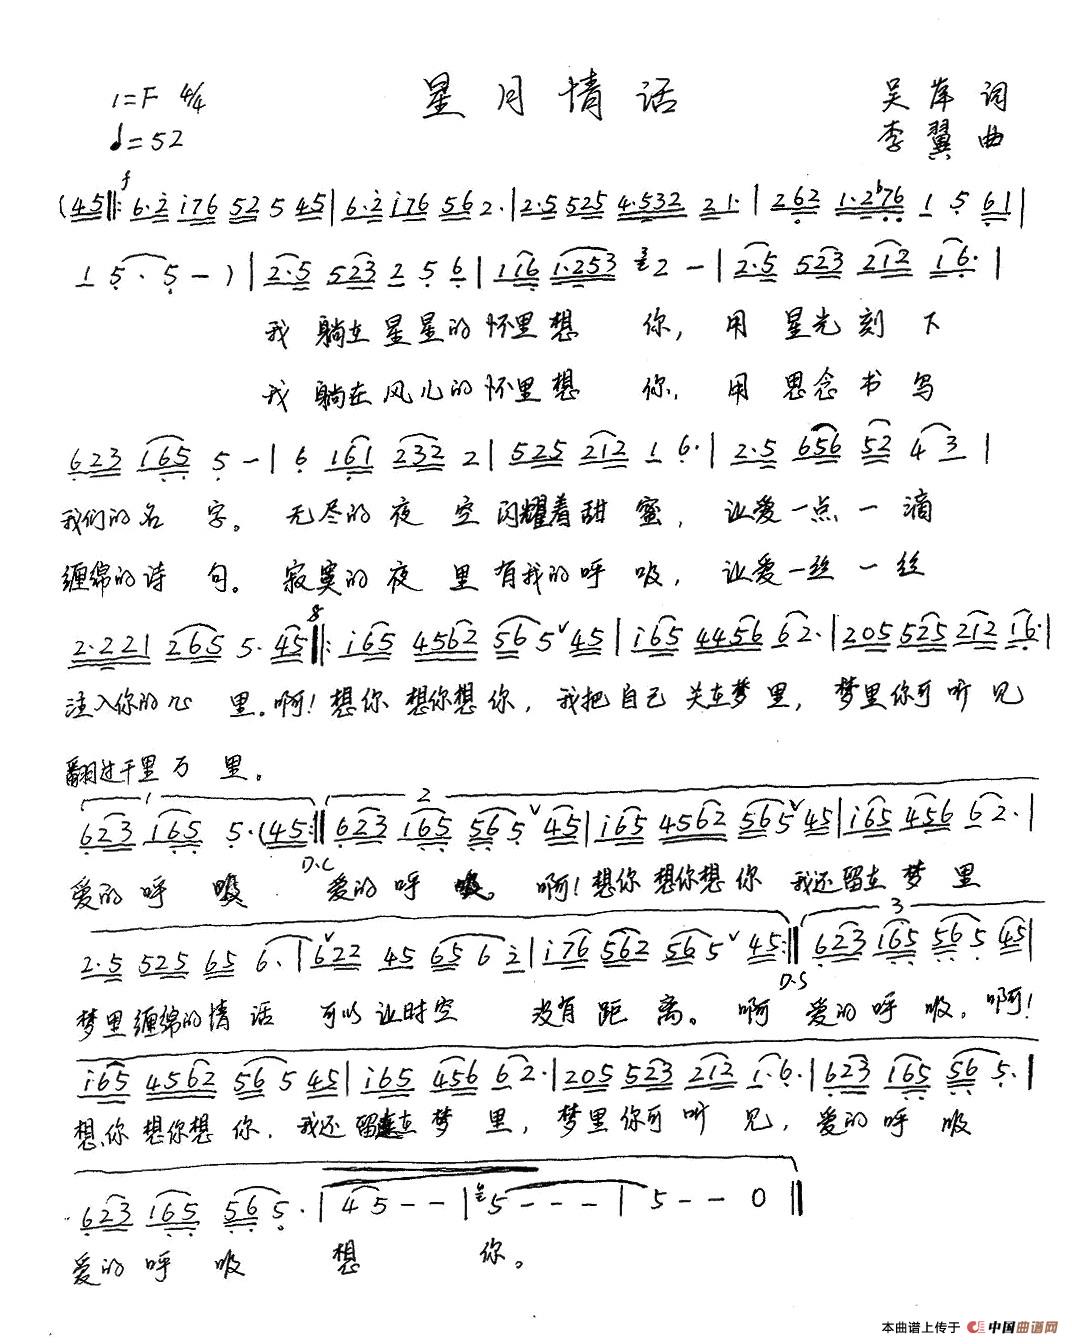 1=F 4/4
星月情话
吴岸 词
♩=52
李翼 曲
f
(45‖: 6·2 i76 52 5 45 | 6·2 i76 56 2· | 2·5 525 4·532 2 1· | 262 1·2♭76 1 5 61 |
1 5· 5 - ) | 2·5 523 2 5 6 | 116 1·253 2 - | 2·5 523 212 16· |
我躺在星星的怀里想 你，用 星光刻下
我躺在风儿的怀里想 你，用 思念书写
623 165 5 - | 6 161 232 2 | 525 212 1 6· | 2·5 656 52 4 3 |
我们的名 字。无尽的夜 空闪耀着甜 蜜，让爱一点一滴
缠绵的诗 句。寂寞的夜 里有我的呼 吸，让爱一丝一丝
2·221 265 5· 45‖: i65 4562 56 5 ∨ 45 | i65 4456 62· | 205 525 212 16· |
注入你的心 里。啊！想你想你想你，我把自己关在梦里，梦里你可听见
翻过千里万 里。
1 2
623 165 5·(45:‖ 623 165 56 5 ∨ 45 | i65 4562 56 5 ∨ 45 | i65 456 62· |
D.C
爱的呼 吸 爱的呼 吸。啊！想你想你想你 我还留在梦里
3
2·5 525 65 6· | i ∨ 22 45 65 6 2 | i76 562 56 5 ∨ 45:‖ 623 165 56 5 45 |
D.S
梦里缠绵的情话 可以让时空 没有距离。啊 爱的呼吸，啊！
i65 4562 56 5 45 | i65 456 62· | 205 523 212 1·6· | 623 165 56 5· |
想你想你想你，我还留在梦里，梦里你可听见，爱的呼吸
623 165 56 5· | 4 5 - - | 5 - - - | 5 - - 0 ‖
爱的呼吸 想 你。
本曲谱上传于 中国曲谱网